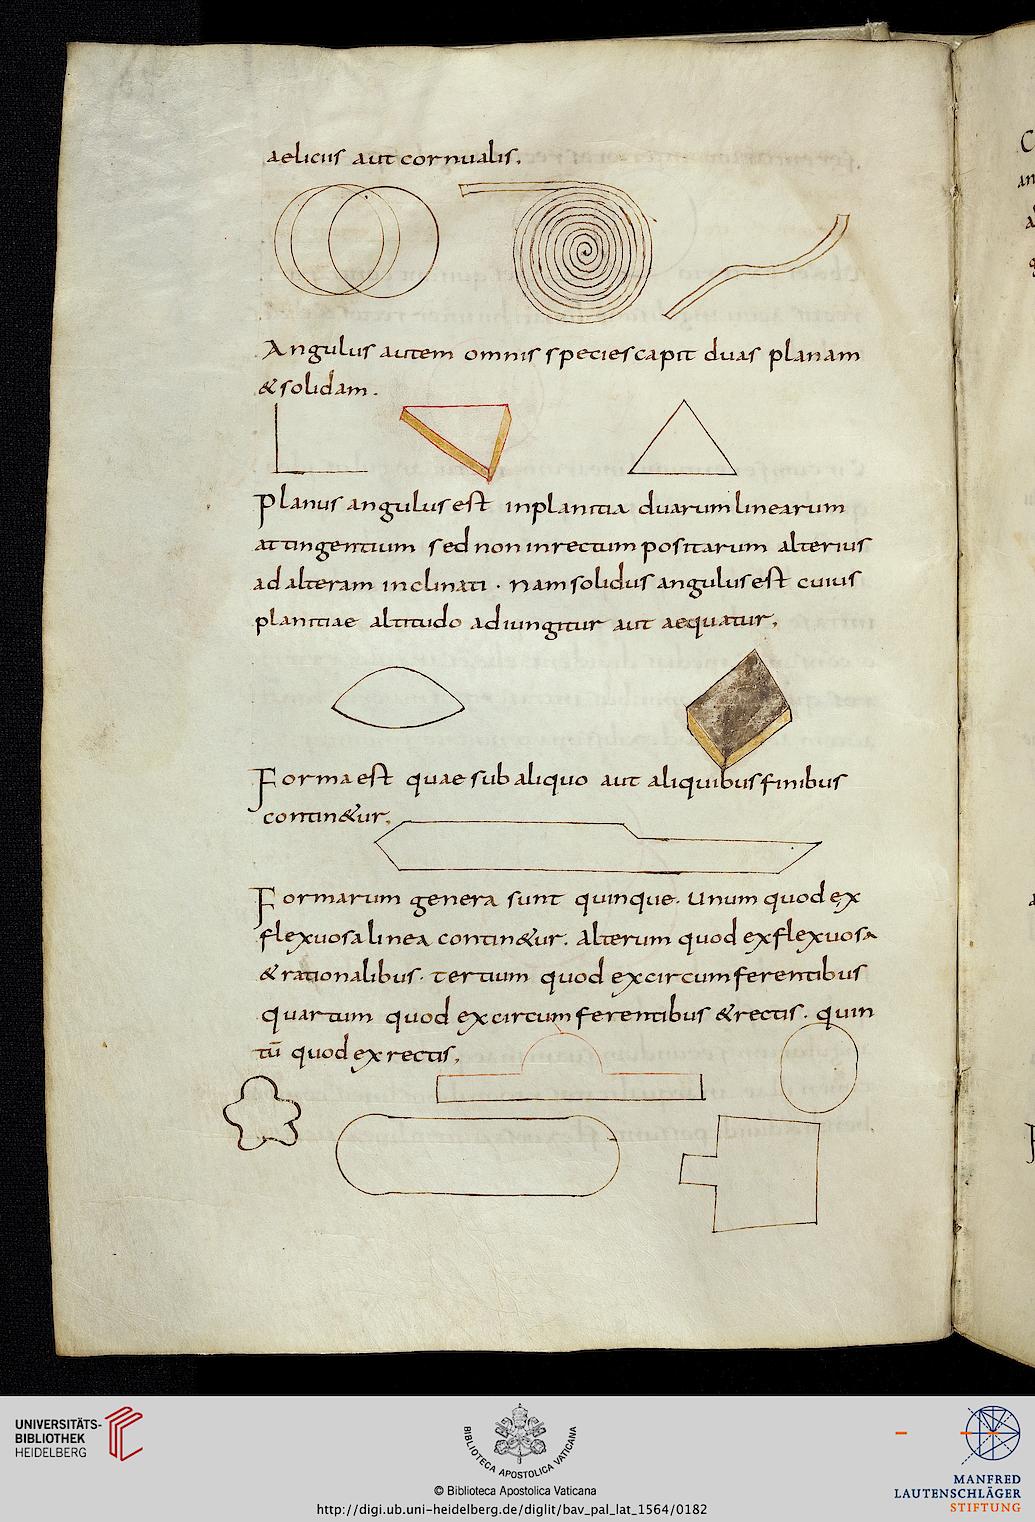 aelicus aut cornualis.
Angulus autem omnis species capit duas planam
& solidam.
Planus angulus est in planitia duarum linearum
attingentium sed non in rectum positarum alterius
ad alteram inclinati. nam solidus angulus est cuius
planitiae altitudo adiungitur aut aequatur,
Forma est quae sub aliquo aut aliquibus finibus
contin&ur,
Formarum genera sunt quinque. Unum quod ex
flexuosa linea contin&ur. Alterum quod ex flexuosa
& rationalibus. tertium quod ex circumferentibus
quartum quod ex circumferentibus & rectis. quin
tū quod ex rectis,
UNIVERSITÄTS-
BIBLIOTHEK
HEIDELBERG
BIBLIOTECA APOSTOLICA VATICANA
© Biblioteca Apostolica Vaticana
http://digi.ub.uni-heidelberg.de/diglit/bav_pal_lat_1564/0182
MANFRED
LAUTENSCHLÄGER
STIFTUNG